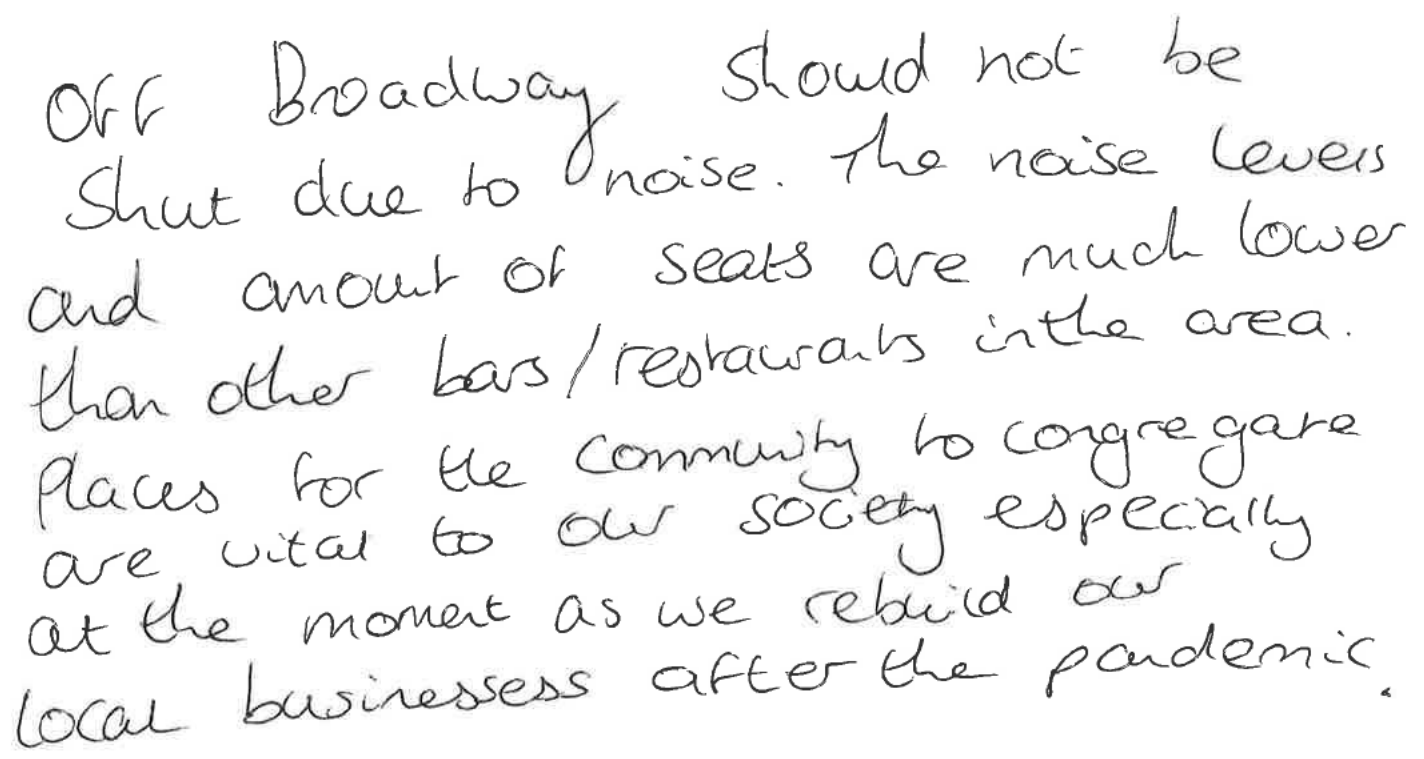 Off Broadway should not be
shut due to noise. The noise levels
and amount of seats are much lower
than other bars/restaurants in the area.
Places for the community to congregate
are vital to our society especially
at the moment as we rebuild our
local businessess after the pandemic.